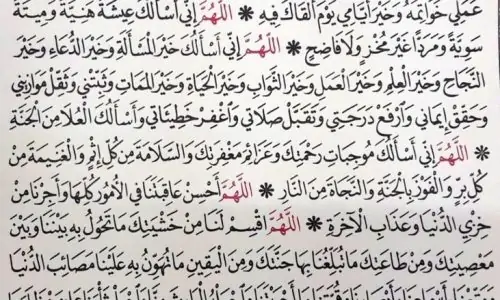 عَمَلِي خَوَاتِمَهُ وَخَيْرَ أَيَّامِي يَوْمَ أَلْقَاكَ فِيهِ * اللَّهُمَّ إِنِّي أَسْأَلُكَ عِيشَةً هَنِيَّةً وَمِيتَةً
سَوِيَّةً وَمَرَدًّا غَيْرَ مُخْزٍ وَلَا فَاضِحٍ * اللَّهُمَّ إِنِّي أَسْأَلُكَ خَيْرَ الْمَسْأَلَةِ وَخَيْرَ الدُّعَاءِ وَخَيْرَ
النَّجَاحِ وَخَيْرَ الْعِلْمِ وَخَيْرَ الْعَمَلِ وَخَيْرَ الثَّوَابِ وَخَيْرَ الْحَيَاةِ وَخَيْرَ الْمَمَاتِ وَثَبِّتْنِي وَثَقِّلْ مَوَازِينِي
وَحَقِّقْ إِيمَانِي وَارْفَعْ دَرَجَتِي وَتَقَبَّلْ صَلَاتِي وَاغْفِرْ خَطِيئَاتِي وَأَسْأَلُكَ الْعُلَا مِنَ الْجَنَّةِ
* اللَّهُمَّ إِنِّي أَسْأَلُكَ مُوجِبَاتِ رَحْمَتِكَ وَعَزَائِمَ مَغْفِرَتِكَ وَالسَّلَامَةَ مِنْ كُلِّ إِثْمٍ وَالْغَنِيمَةَ مِنْ
كُلِّ بِرٍّ وَالْفَوْزَ بِالْجَنَّةِ وَالنَّجَاةَ مِنَ النَّارِ * اللَّهُمَّ أَحْسِنْ عَاقِبَتَنَا فِي الْأُمُورِ كُلِّهَا وَأَجِرْنَا مِنْ
خِزْيِ الدُّنْيَا وَعَذَابِ الْآخِرَةِ * اللَّهُمَّ اقْسِمْ لَنَا مِنْ خَشْيَتِكَ مَا تَحُولُ بِهِ بَيْنَنَا وَبَيْنَ
مَعْصِيَتِكَ وَمِنْ طَاعَتِكَ مَا تُبَلِّغُنَا بِهَا جَنَّتَكَ وَمِنَ الْيَقِينِ مَا تُهَوِّنُ بِهِ عَلَيْنَا مَصَائِبَ الدُّنْيَا